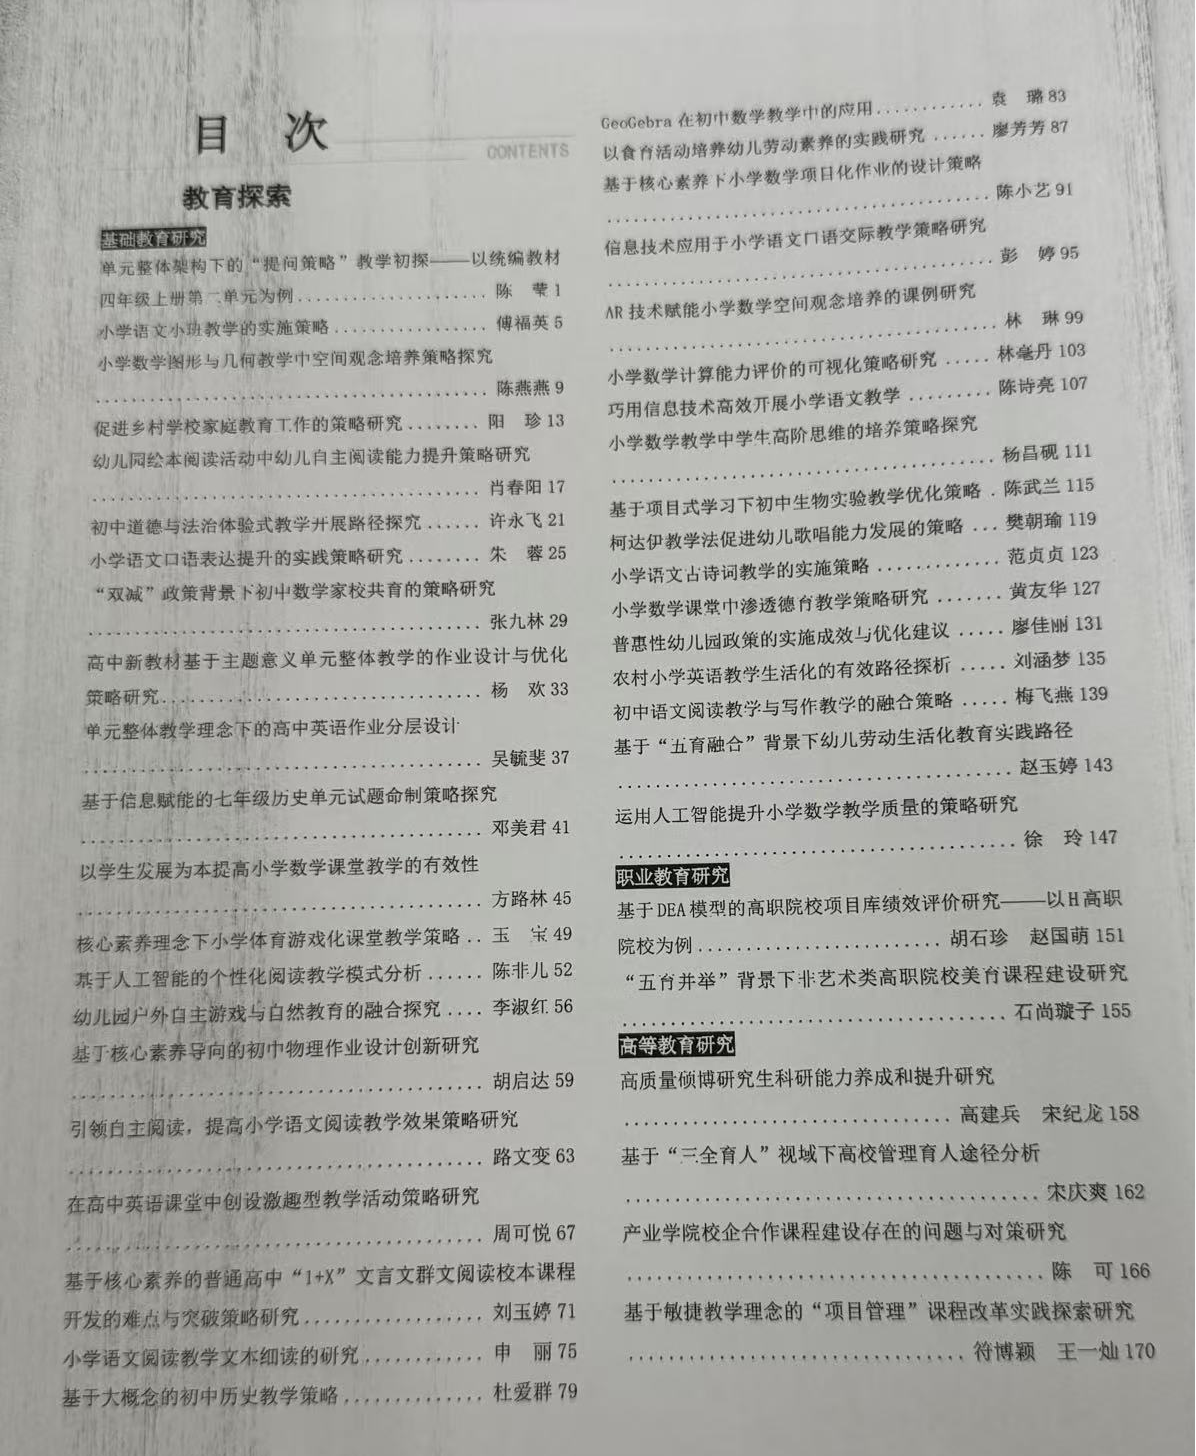 目 次
CONTENTS
教育探索
基础教育研究
单元整体架构下的“提问策略”教学初探——以统编教材
四年级上册第二单元为例.................... 陈 莹 1
小学语文小班教学的实施策略................. 傅福英 5
小学数学图形与几何教学中空间观念培养策略探究
.......................................... 陈燕燕 9
促进乡村学校家庭教育工作的策略研究........ 阳 珍 13
幼儿园绘本阅读活动中幼儿自主阅读能力提升策略研究
.......................................... 肖春阳 17
初中道德与法治体验式教学开展路径探究...... 许永飞 21
小学语文口语表达提升的实践策略研究........ 朱 蓉 25
“双减”政策背景下初中数学家校共育的策略研究
.......................................... 张九林 29
高中新教材基于主题意义单元整体教学的作业设计与优化
策略研究.................................. 杨 欢 33
单元整体教学理念下的高中英语作业分层设计
.......................................... 吴毓斐 37
基于信息赋能的七年级历史单元试题命制策略探究
.......................................... 邓美君 41
以学生发展为本提高小学数学课堂教学的有效性
.......................................... 方路林 45
核心素养理念下小学体育游戏化课堂教学策略.. 玉 宝 49
基于人工智能的个性化阅读教学模式分析...... 陈非儿 52
幼儿园户外自主游戏与自然教育的融合探究.... 李淑红 56
基于核心素养导向的初中物理作业设计创新研究
.......................................... 胡启达 59
引领自主阅读，提高小学语文阅读教学效果策略研究
.......................................... 路文变 63
在高中英语课堂中创设激趣型教学活动策略研究
.......................................... 周可悦 67
基于核心素养的普通高中“1+X”文言文群文阅读校本课程
开发的难点与突破策略研究................... 刘玉婷 71
小学语文阅读教学文本细读的研究............ 申 丽 75
基于大概念的初中历史教学策略.............. 杜爱群 79
GeoGebra 在初中数学教学中的应用............ 袁 璐 83
以食育活动培养幼儿劳动素养的实践研究...... 廖芳芳 87
基于核心素养下小学数学项目化作业的设计策略
.......................................... 陈小艺 91
信息技术应用于小学语文口语交际教学策略研究
.......................................... 彭 婷 95
AR 技术赋能小学数学空间观念培养的课例研究
.......................................... 林 琳 99
小学数学计算能力评价的可视化策略研究..... 林毫丹 103
巧用信息技术高效开展小学语文教学......... 陈诗亮 107
小学数学教学中学生高阶思维的培养策略探究
.......................................... 杨昌砚 111
基于项目式学习下初中生物实验教学优化策略. 陈武兰 115
柯达伊教学法促进幼儿歌唱能力发展的策略... 樊朝瑜 119
小学语文古诗词教学的实施策略............. 范贞贞 123
小学数学课堂中渗透德育教学策略研究....... 黄友华 127
普惠性幼儿园政策的实施成效与优化建议..... 廖佳丽 131
农村小学英语教学生活化的有效路径探析..... 刘涵梦 135
初中语文阅读教学与写作教学的融合策略..... 梅飞燕 139
基于“五育融合”背景下幼儿劳动生活化教育实践路径
.......................................... 赵玉婷 143
运用人工智能提升小学数学教学质量的策略研究
.......................................... 徐 玲 147
职业教育研究
基于 DEA 模型的高职院校项目库绩效评价研究——以 H 高职
院校为例.......................... 胡石珍 赵国萌 151
“五育并举”背景下非艺术类高职院校美育课程建设研究
.......................................... 石尚璇子 155
高等教育研究
高质量硕博研究生科研能力养成和提升研究
.................................. 高建兵 宋纪龙 158
基于“三全育人”视域下高校管理育人途径分析
.......................................... 宋庆爽 162
产业学院校企合作课程建设存在的问题与对策研究
.......................................... 陈 可 166
基于敏捷教学理念的“项目管理”课程改革实践探索研究
.................................. 符博颖 王一灿 170